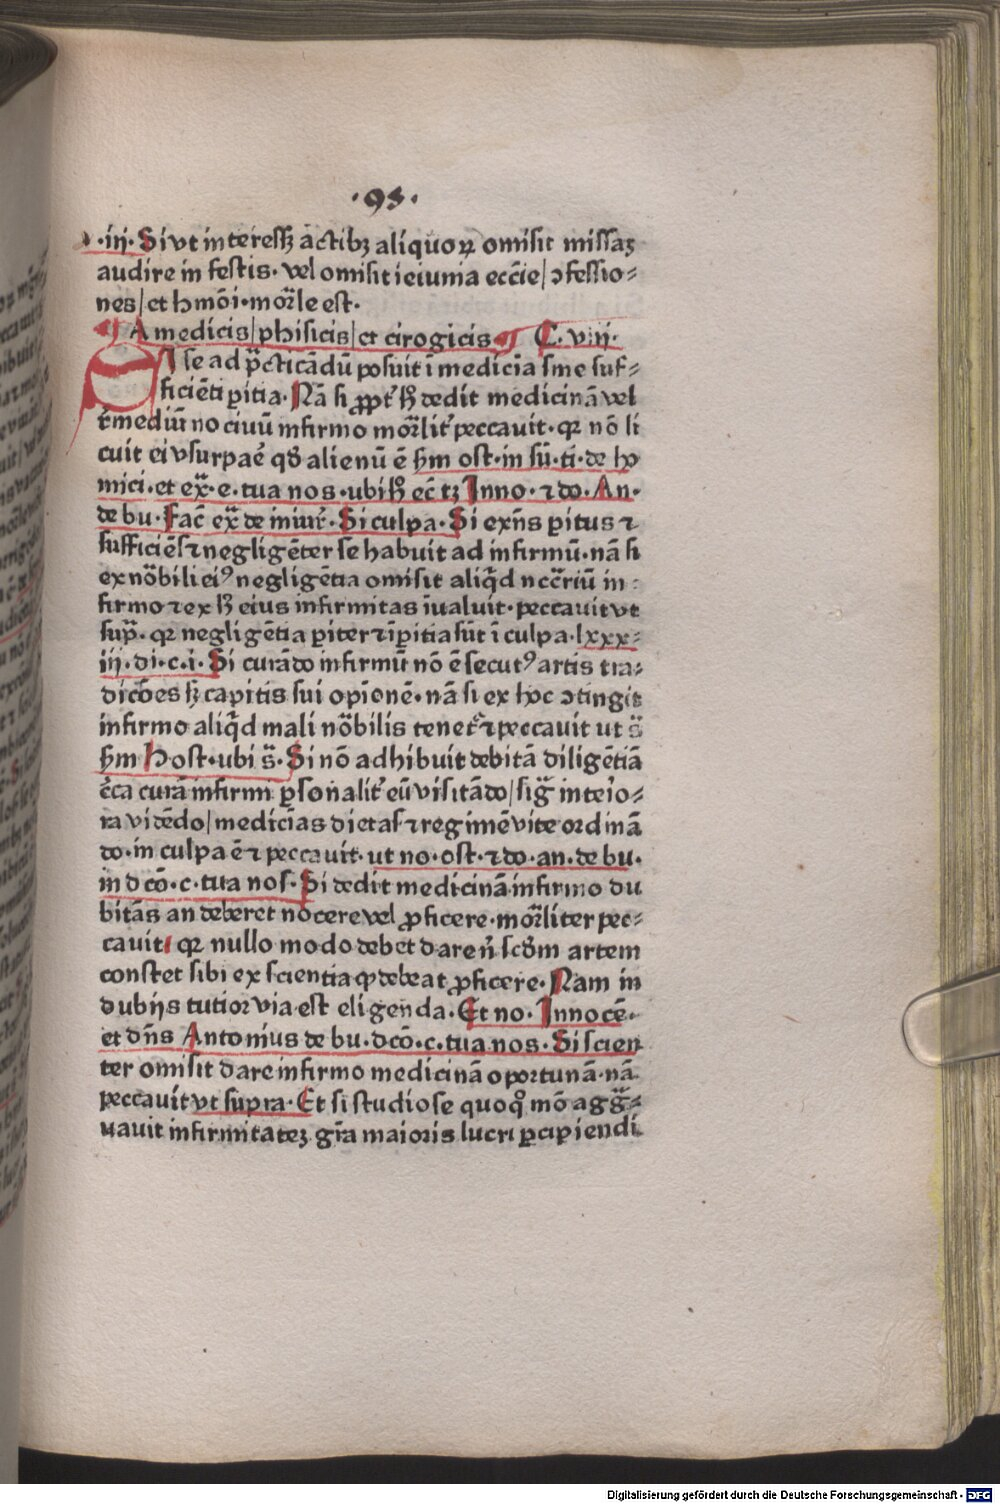 ·95·
·iij· Si vt interesset actibꝫ aliquoꝝ omisit missaꝫ
audire in festis· vel omisit ieiunia ecc̄ie/ ↄfessio⸗
nes/ et hmōi· mor̄le est·
¶ A medicis/ phisicis/ et cirogicis ¶ C. vij.
SI se ad p̄cticādū posuit ī medicīa sine suf⸗
ficiēti ꝑitia· Nā si ꝓpt̄ hͦ dedit medicinā vel
remediū nociuū infirmo mor̄lit̄ peccauit· qꝛ nō li
cuit ei vsurpar̄e qͦd alienū ē ẜm ost· in sū· ti· de ho
mici· et ex̄· e· tua nos· vbi hͦ ec̄ tꝫ Inno· ⁊ do· An·
de bu· Fac̄ ex̄ de iniur̄· Si culpa· Si exn̄s ꝑitus ⁊
sufficiēs ⁊ negligēter se habuit ad infirmū· nā si
ex nōbili eiꝰ negligētia omisit aliqͥd nccr̄iū in⸗
firmo ⁊ ex hͦ eius infirmitas īualuit· peccauit vt
sup̄· qꝛ negligētia ꝑiter ⁊ īꝑitia sūt ī culpa· lxxx⸗
iij· di· c· i· Si curādo infirmū nō ē secutꝰ artis tra⸗
dic̄ōes sꝫ capitis sui opīonē· nā si ex hoc ↄtingit
infirmo aliqͥd mali nōbilis tenet̄ ⁊ peccauit ut s̄
ẜm Host· ubi s̄· Si nō adhibuit debitā diligētiā
c̄ca curā infirmi ꝑsonalit̄ eū visitādo/ sig̃ interio⸗
ra vidēdo/ medicīas dietas ⁊ regimē vite ordinā
do· in culpa ē ⁊ peccauit· ut no· ost· ⁊ do· an· de bu·
in d cō· c· tua nos· Si dedit medicinā infirmo du
bitās an deberet nocere vel ꝓficere· mor̄liter pec⸗
cauit qꝛ nullo modo debet dare n̄ scdm artem
constet sibi ex scientia ꝙ debeat ꝓficere· Nam in
dubijs tutior via est eligenda· Et no· Innocē·
et dn̄s Antonius de bu· d cō· c· tua nos· Si scien
ter omisit dare infirmo medicinā oportunā· nā
peccauit vt supra· Et si studiose quoqͦ mō agg̃⸗
uauit infirmitateꝫ gr̄a maioris lucri ꝑcipiendi
Digitalisierung gefördert durch die Deutsche Forschungsgemeinschaft - DFG